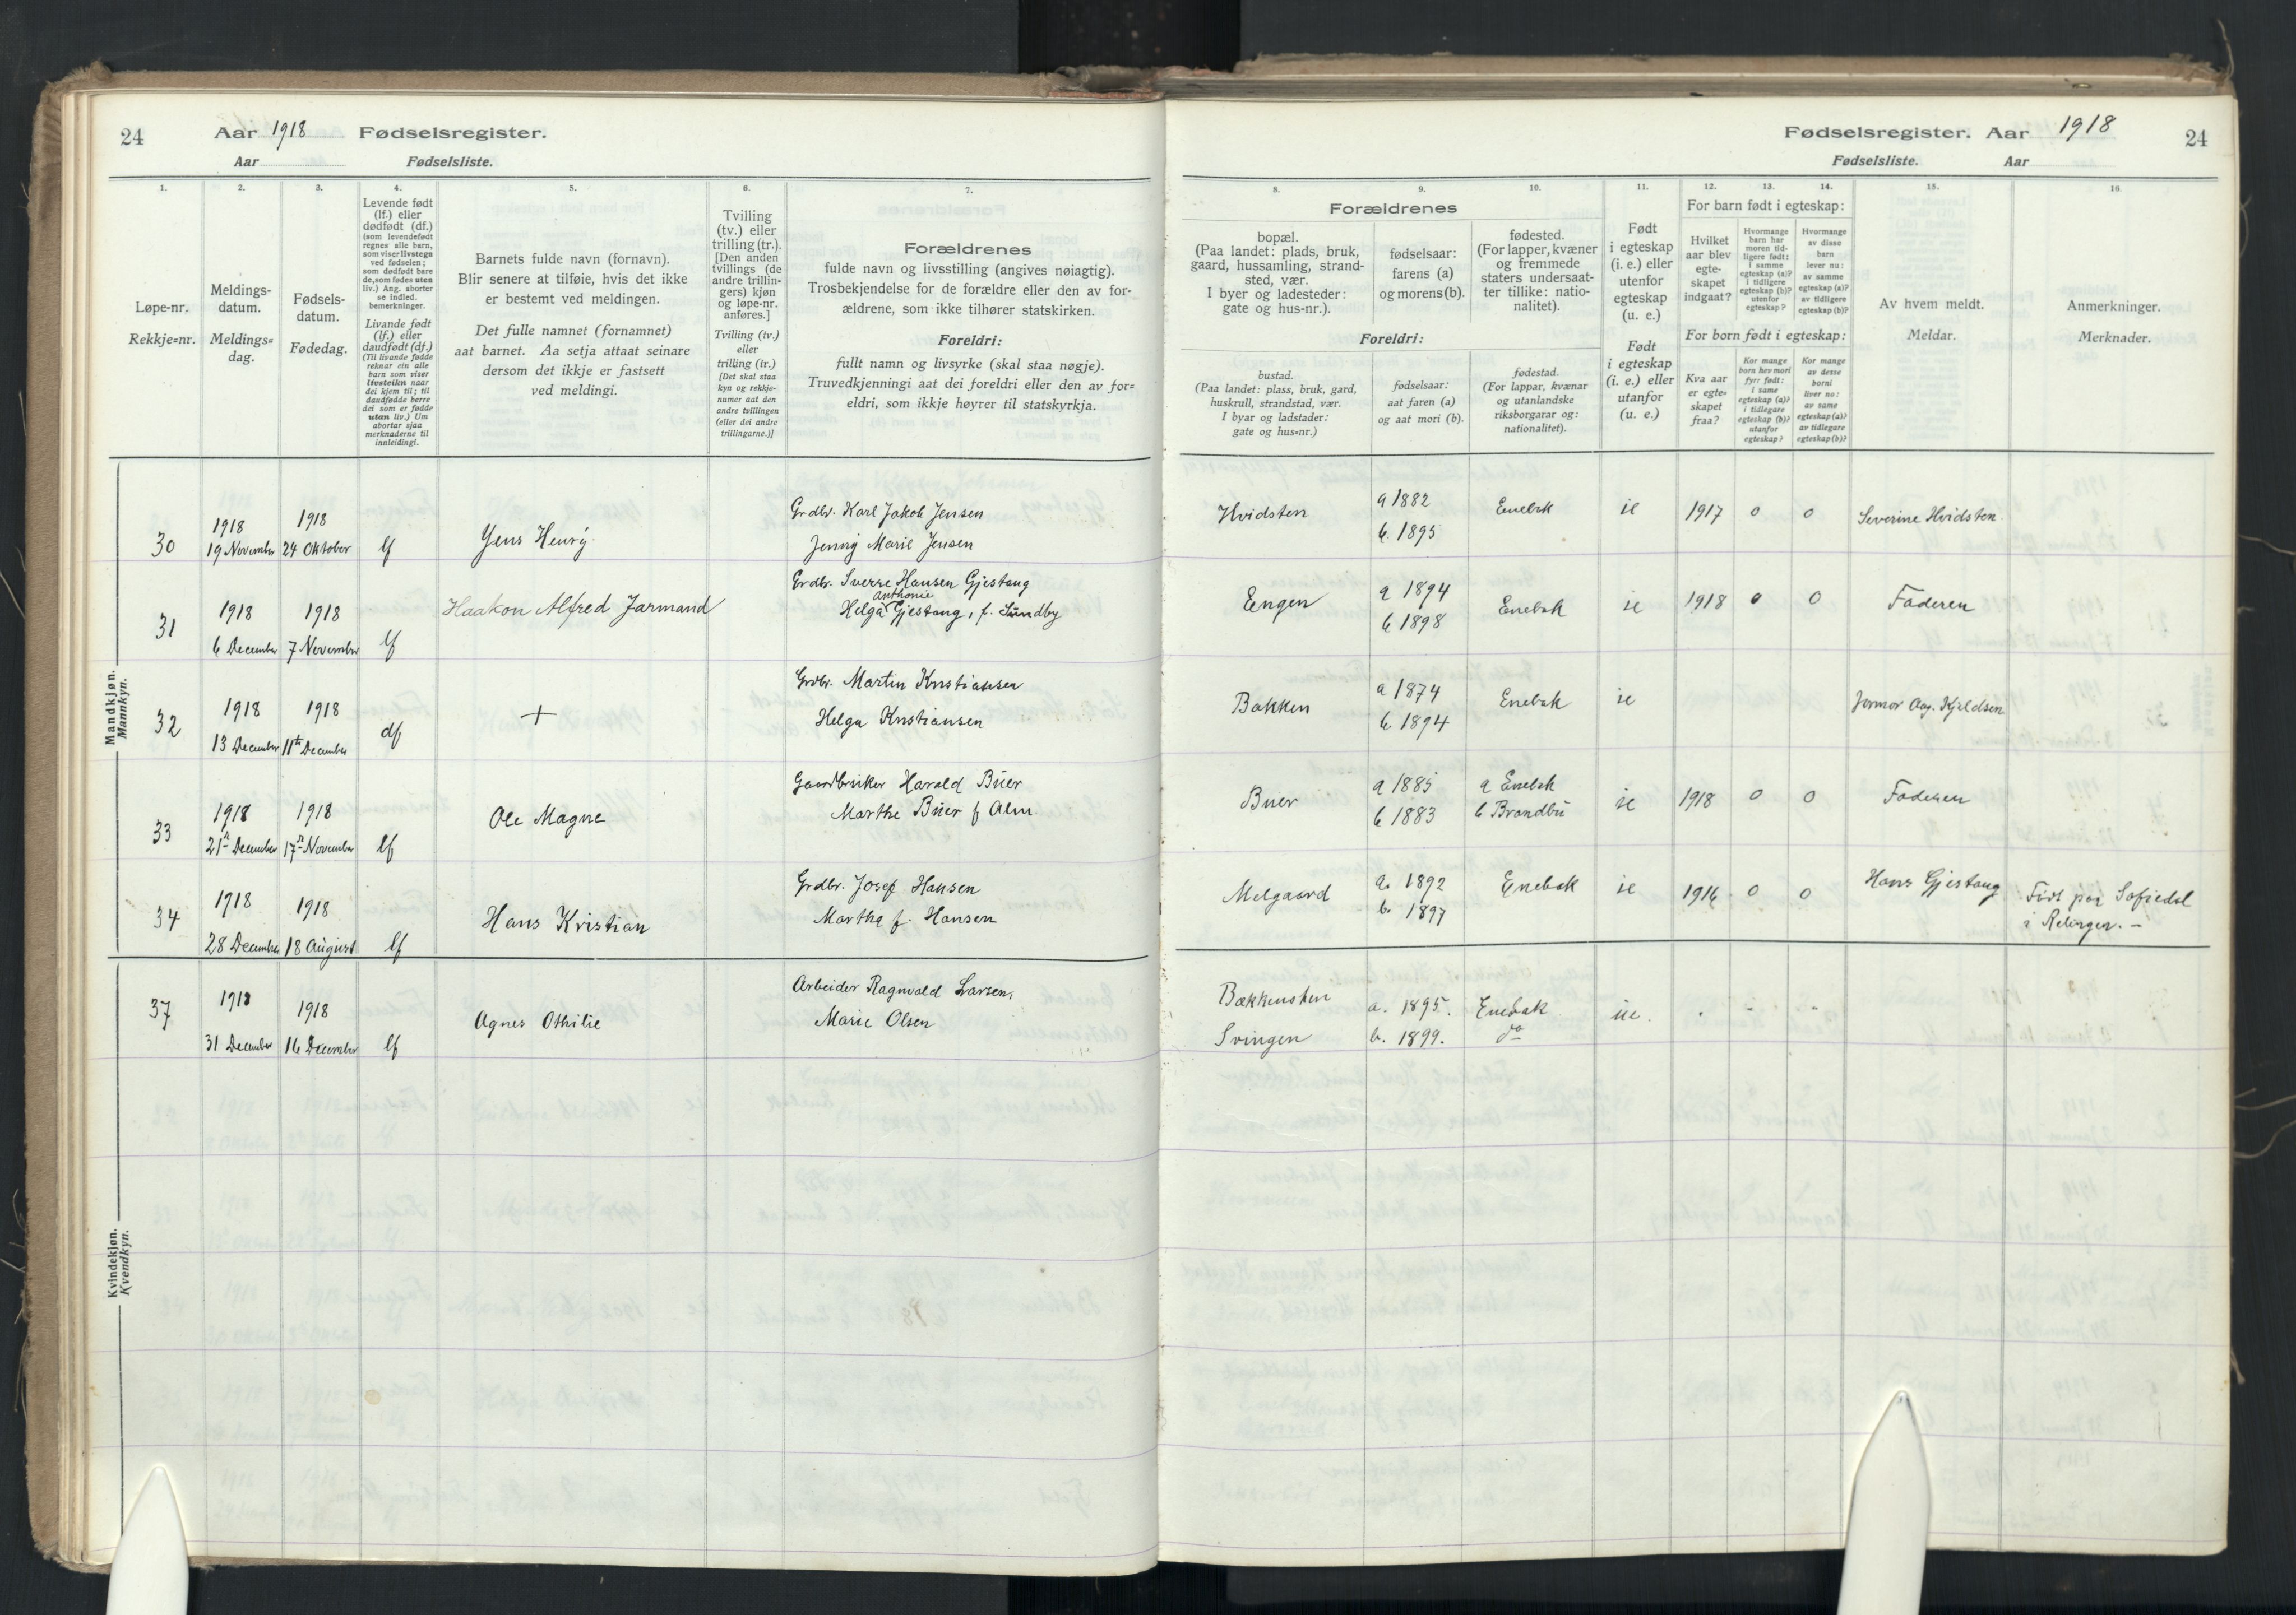 24 Aar 1918 Fødselsregister.
Aar Fødselsliste.
1. 2. 3. 4. 5. 6. 7.
Løpe-nr.
Rekkje-nr.
Meldings-
datum.
Meldings-
dag.
Fødsels-
datum.
Fødedag.
Levende født
(lf.) eller
dødfødt (df.)
(som levendefødt
regnes alle barn,
som viser livstegn
ved fødselen;
som dødfødt bare
de, som fødes uten
liv.) Ang. aborter
se indled.
bemerkninger.
Livande født
(lf.) eller
daudfødt (df.)
(Til livande fødde
reknar ein alle
barn som viser
livsteikn naar
dei kjem til; til
daudfødde berre
dei som er fødde
utan liv.) Um
abortar sjaa
merknaderne til
innleidingi.
Barnets fulde navn (fornavn).
Blir senere at tilføie, hvis det ikke
er bestemt ved meldingen.
Det fulle namnet (fornamnet)
aat barnet. Aa setja attaat seinare
dersom det ikkje er fastsett
ved meldingi.
Tvilling
(tv.) eller
trilling (tr.).
[Den anden
tvillings (de
andre trillin-
gers) kjøn
og løpe-nr.
anføres.]
Tvilling (tv.)
eller
trilling (tr.)
[Det skal staa
kyn og rekkje-
numer aat den
andre tvillingen
(eller dei andre
trillingarne.)]
Forældrenes
fulde navn og livsstilling (angives nøiagtig).
Trosbekjendelse for de forældre eller den av for-
ældrene, som ikke tilhører statskirken.
Foreldri:
fullt namn og livsyrke (skal staa nøgje).
Truvedkjenningi aat dei foreldri eller den av for-
eldri, som ikkje høyrer til statskyrkja.
Mandkjøn.
Mannkyn.
30 1918 19 November 1918 24 Oktober lf Jens Henry Grdbr. Karl Jakob Jensen
Jenny Marie Jensen
31 1918 6 December 1918 7 November lf Haakon Alfred Jarmand Grdbr. Sverre Hansen Gjestang
Anthonie
Helga Gjestang, f. Sundby
32 1918 13 December 1918 11te December df + Grdbr. Martin Kristiansen
Helga Kristiansen
33 1918 21 December 1918 17 November lf Ole Magne Gaardbruker Harald Buer
Marthe Buer f Alm.
34 1918 28 December 1918 18 August lf Hans Kristian Grdbr. Josef Hansen
Martha f. Hansen
Kvindekjøn.
Kvendkyn.
37 1918 31 December 1918 16 December lf Agnes Othilie Arbeider Ragnvald Larsen,
Marie Olsen
Fødselsregister. Aar 1918 24
Fødselsliste. Aar
8. 9. 10. 11. 12. 13. 14. 15. 16.
Forældrenes
bopæl.
(Paa landet: plads, bruk,
gaard, hussamling, strand-
sted, vær.
I byer og ladesteder:
gate og hus-nr.).
fødselsaar:
farens (a)
og morens (b).
fødested.
(For lapper, kvæner
og fremmede
staters undersaat-
ter tillike: natio-
nalitet).
Foreldri:
bustad.
(Paa landet: plass, bruk, gard,
huskrull, strandstad, vær.
I byar og ladstader:
gate og hus-nr.)
fødselsaar:
aat faren (a)
og aat mori (b).
fødestad.
(For lappar, kvænar
og utanlandske
riksborgarar og:
nationalitet).
Født
i egteskap
(i. e.) eller
utenfor
egteskap
(u. e.)
Født
i egteskap
(i. e.) eller
utanfor
(u. e.)
For barn født i egteskap:
Hvilket
aar blev
egte-
skapet
indgaat?
Hvormange
barn har
moren tid-
ligere født:
i samme
egteskap (a)?
i tidligere
egteskap (b)?
utenfor
egteskap?
Hvormange
av disse
barn
lever nu:
av samme
egteskap (a)?
av tidligere
egteskap (b)?
For born født i egteskap:
Kva aar
er egte-
skapet
fraa?
Kor mange
born hev mori
fyrr født:
i same
egteskap (a)?
i tidlegare
egteskap (b)?
utanfor
egteskap?
Kor mange
av desse
borni
liver no:
av same
egteskap (a)?
av tidlegare
egteskap (b)?
Av hvem meldt.
Meldar.
Anmerkninger.
Merknader.
Hvidsten a 1882 Enebak ie 1917 0 0 Severine Hvidsten.
b. 1895
Engen a 1894 Enebak ie 1918 0 0 Faderen
b 1898
Bakken a 1874 Enebak ie Jormor Aag. Kjeldsen
b. 1894
Buer a 1885 a Enebak ie 1918 0 0 Faderen
b 1883 b Brandbu
Melgaard a. 1892 Enebak ie 1916 0 0 Hans Gjestang Født paa Sofiedal
b. 1897 i Relingen. –
Bækkensten a. 1895. Enebak ue. . - - -
Svingen b. 1899. do